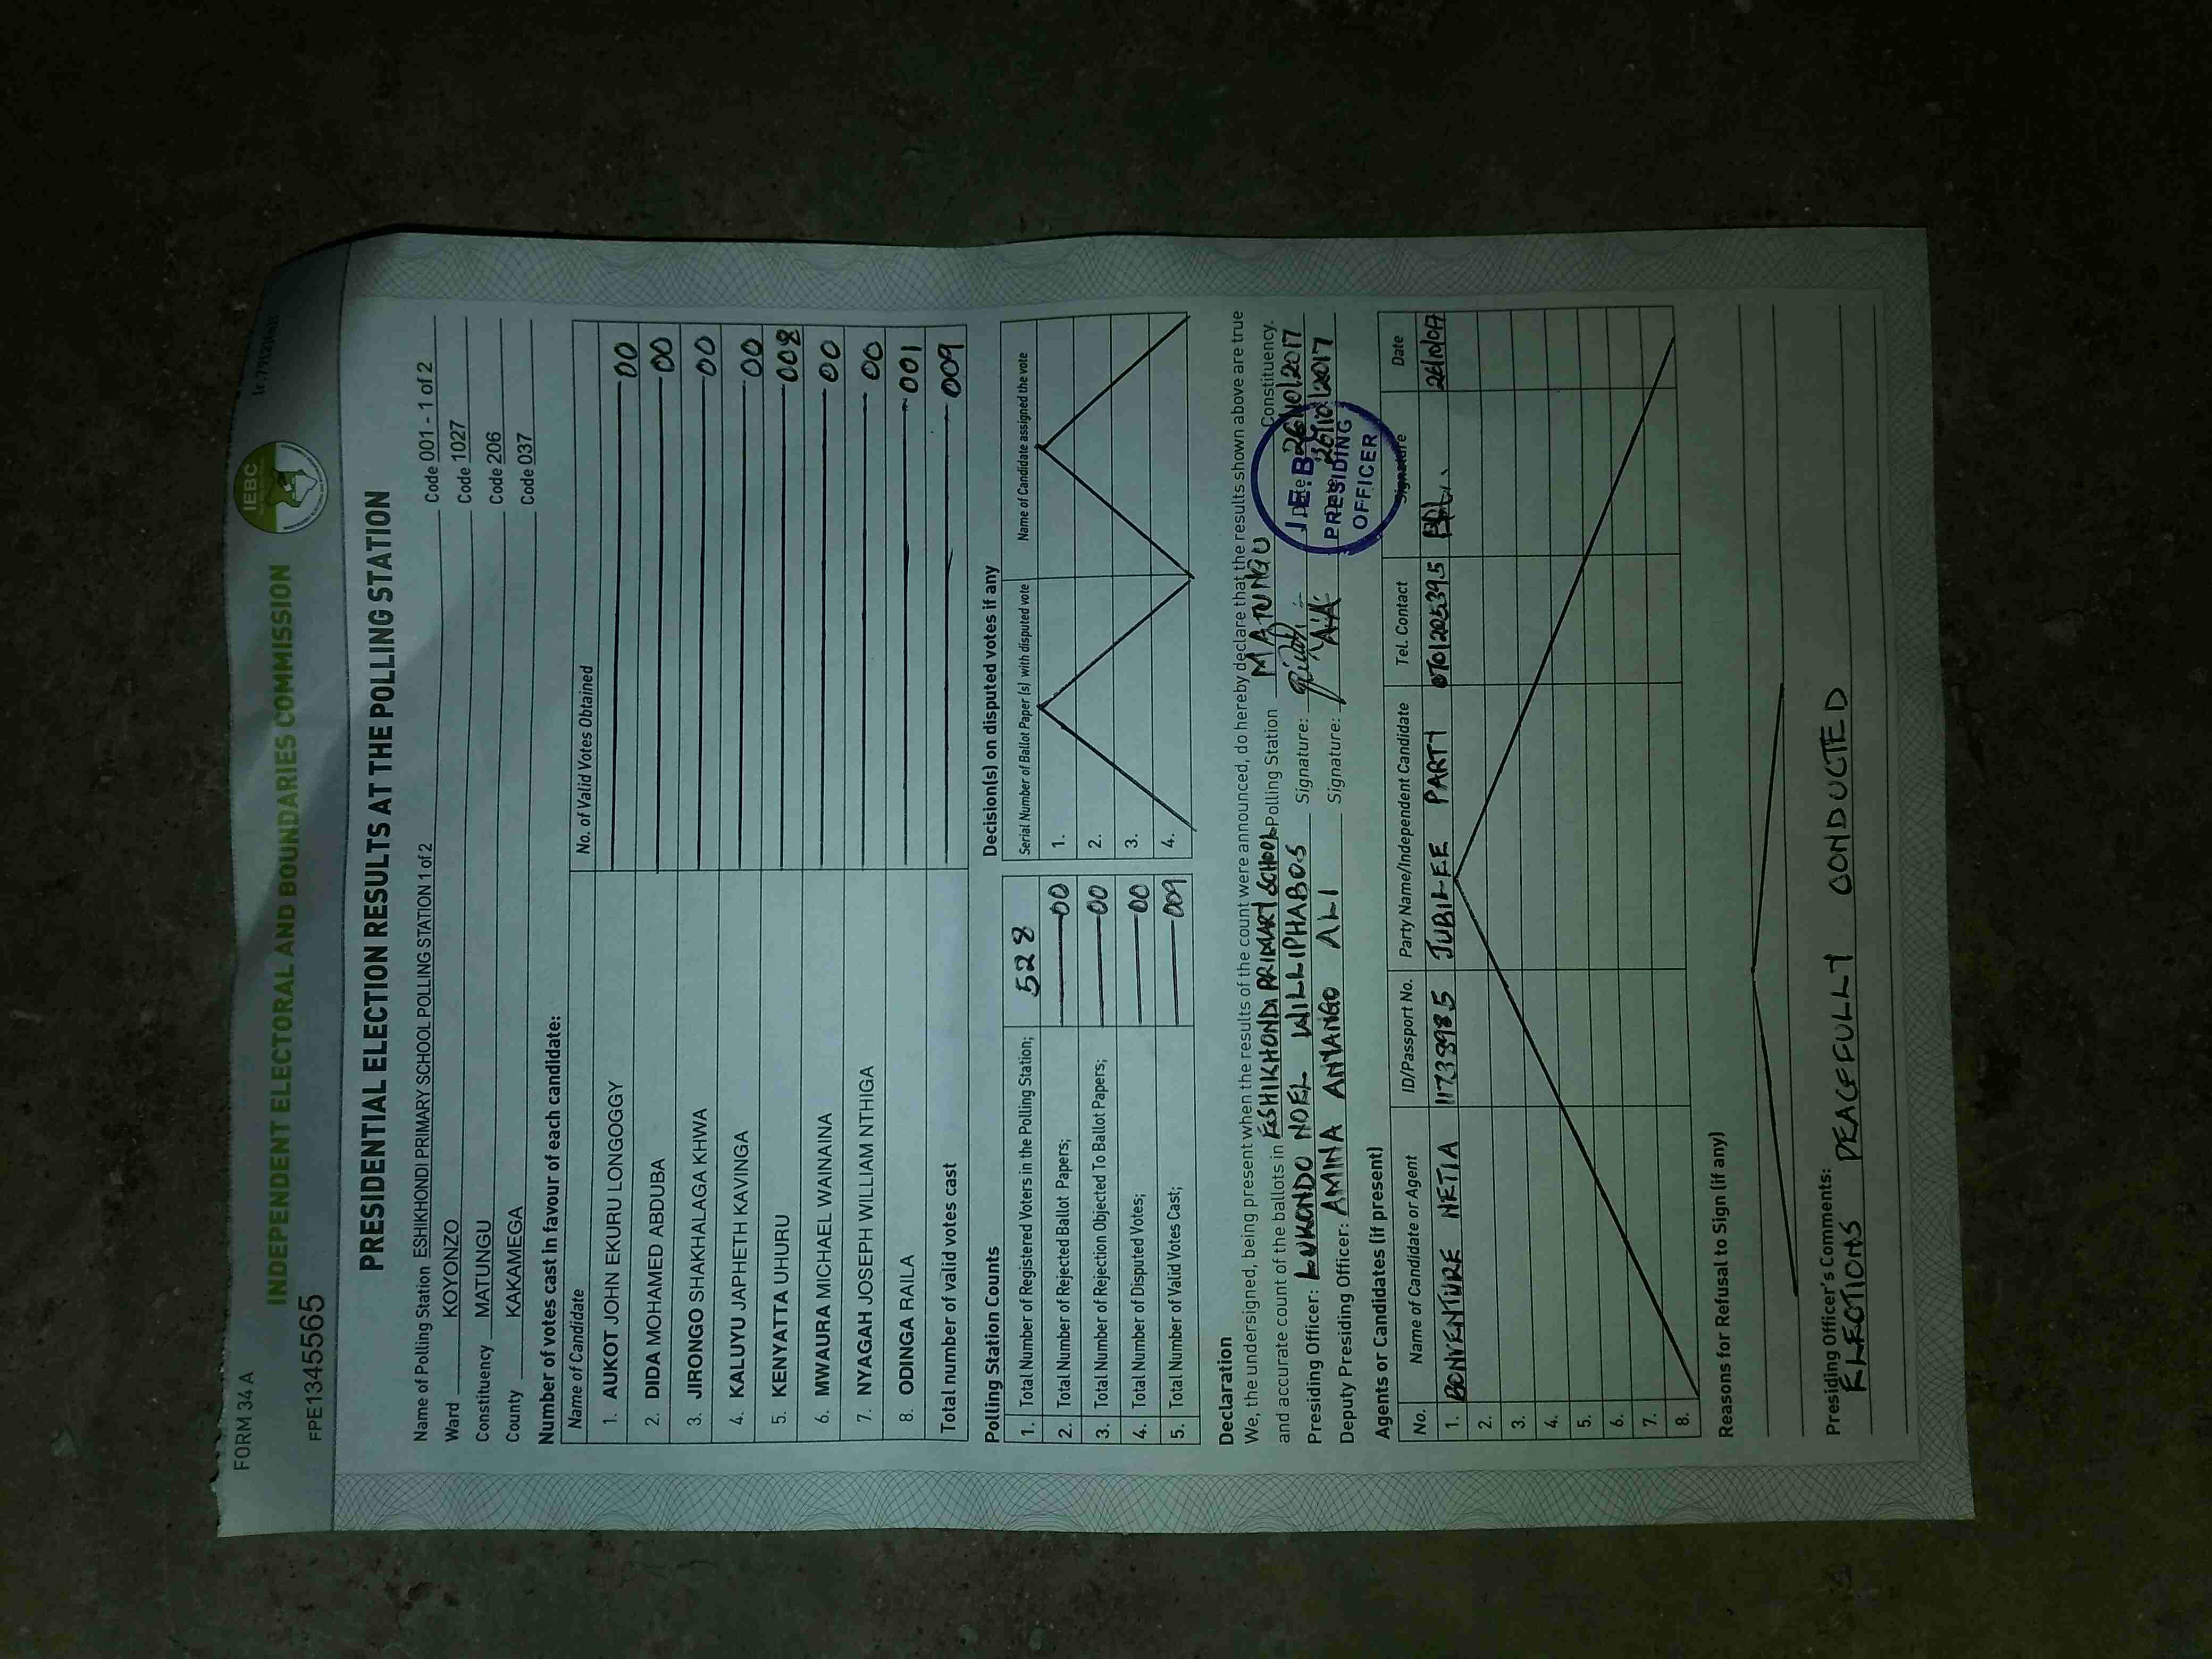 FORM 34 A
INDEPENDENT ELECTORAL AND BOUNDARIES COMMISSION
IEBC
FPE1345565
PRESIDENTIAL ELECTION RESULTS AT THE POLLING STATION
Name of Polling Station ESHIKHONDI PRIMARY SCHOOL POLLING STATION 1 of 2 Code 001 - 1 of 2
Ward KOYONZO Code 1027
Constituency MATUNGU Code 206
County KAKAMEGA Code 037
Number of votes cast in favour of each candidate:
Name of Candidate No. of Valid Votes Obtained
1. AUKOT JOHN EKURU LONGOGGY 00
2. DIDA MOHAMED ABDUBA 00
3. JIRONGO SHAKHALAGA KHWA 00
4. KALUYU JAPHETH KAVINGA 00
5. KENYATTA UHURU 008
6. MWAURA MICHAEL WAINAINA 00
7. NYAGAH JOSEPH WILLIAM NTHIGA 00
8. ODINGA RAILA 001
Total number of valid votes cast 009
Polling Station Counts
1. Total Number of Registered Voters in the Polling Station; 528
2. Total Number of Rejected Ballot Papers; 00
3. Total Number of Rejection Objected To Ballot Papers; 00
4. Total Number of Disputed Votes; 00
5. Total Number of Valid Votes Cast; 009
Decision(s) on disputed votes if any
Serial Number of Ballot Paper (s) with disputed vote Name of Candidate assigned the vote
1.
2.
3.
4.
Declaration
We, the undersigned, being present when the results of the count were announced, do hereby declare that the results shown above are true
and accurate count of the ballots in ESHIKHONDI PRIMARY SCHOOL Polling Station MATUNGU Constituency.
Presiding Officer: LUKONDO NOEL WILLIPHABOS Signature: Date 26/10/2017
Deputy Presiding Officer: AMINA ANYANGO ALI Signature: 26/10/2017
I.E.B.C
PRESIDING
OFFICER
Agents or Candidates (if present)
No. Name of Candidate or Agent ID/Passport No. Party Name/Independent Candidate Tel. Contact Signature Date
1. BONVENTURE NETIA 11733985 JUBILEE PARTY 0701205395
2.
3.
4.
5.
6.
7.
8.
Reasons for Refusal to Sign (if any)
Presiding Officer's Comments:
ELECTIONS PEACEFULLY CONDUCTED